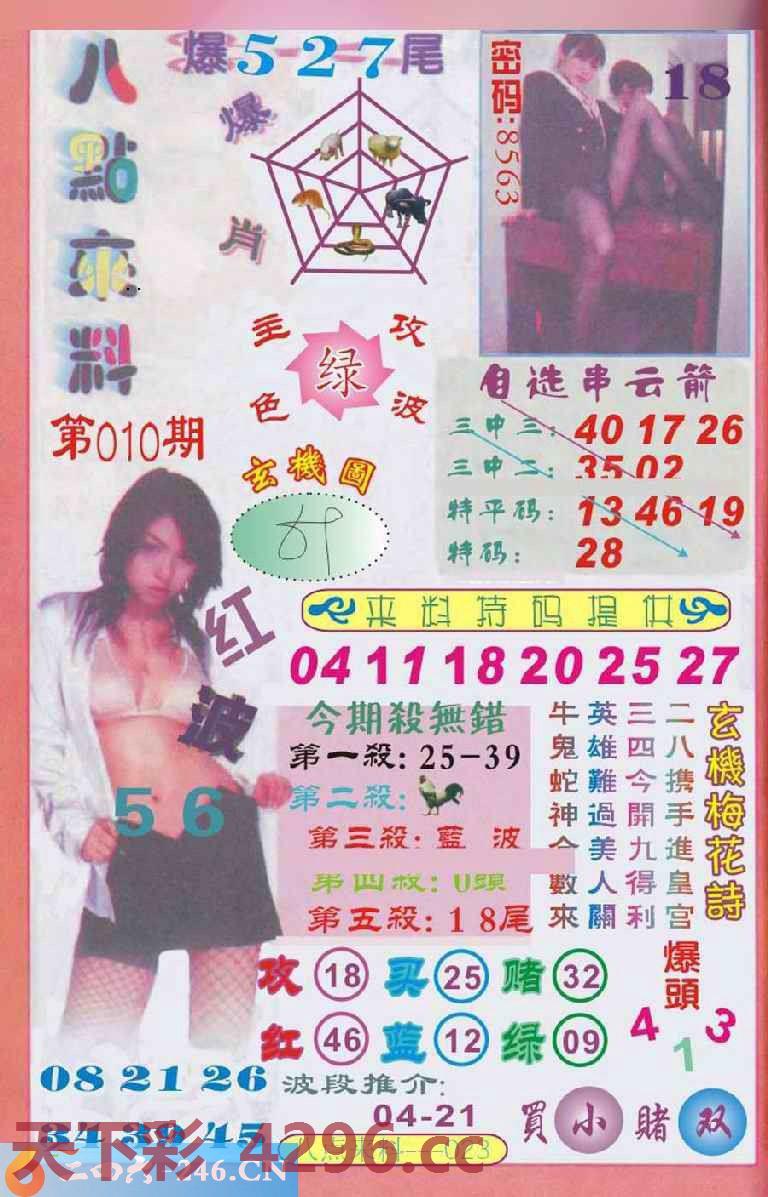 八點來料
爆527尾
爆肖
密码:8563
18
主攻
绿
色波
第010期
玄機圖
自选串云箭
三中三: 40 17 26
三中二: 35 02
特平码: 13 46 19
特码: 28
来料特码提供
04 11 18 20 25 27
红波
56
今期殺無錯
第一殺: 25-39
第二殺:
第三殺: 藍 波
第四殺: 0頭
第五殺: 18尾
玄機梅花詩
二八携手進皇宫
三四今開九得利
英雄難過美人關
牛鬼蛇神合數來
攻 18 买 25 赌 32
红 46 蓝 12 绿 09
爆頭
4 1 3
08 21 26
34 39 45
波段推介:
04-21
買小賭双
八点来料--023
天下彩4296.cc
二四六-246.CN